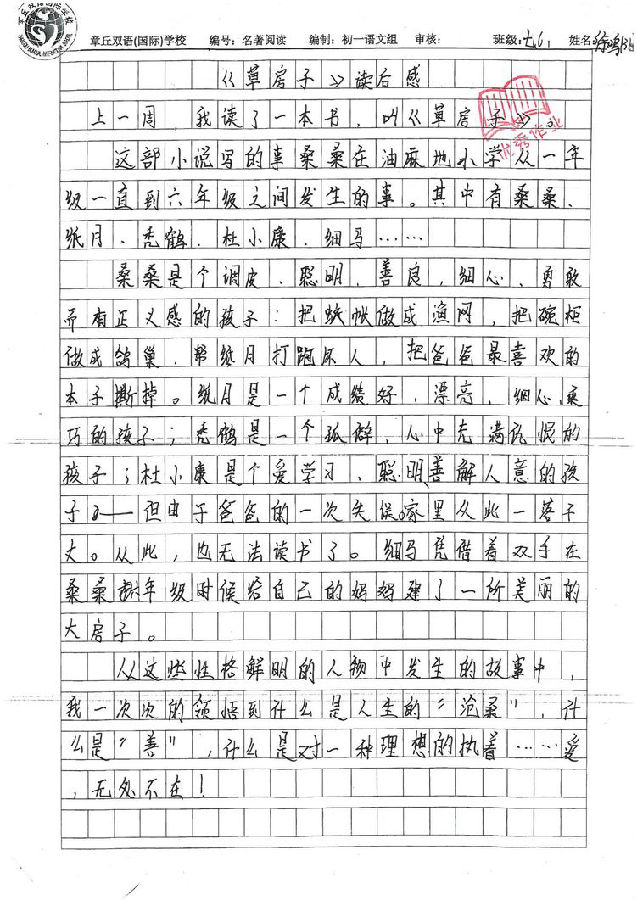 章丘双语(国际)学校 编号：名著阅读 编制：初一语文组 审核： 班级： 姓名
《草房子》读后感
上一周，我读了一本书，叫《草房子》。
优秀作业
这部小说写的事桑桑在油麻地小学从一年
级一直到六年级之间发生的事。其中有桑桑、
纸月、秃鹤、杜小康、细马……
桑桑是个调皮、聪明、善良，细心、勇敢
而有正义感的孩子：把蚊帐做成渔网，把碗柜
做成鸽巢，帮纸月打跑坏人，把爸爸最喜欢的
本子撕掉。纸月是一个成绩好，漂亮，细心，乖
巧的孩子；秃鹤是一个孤僻，心中充满讹恨的
孩子；杜小康是个爱学习、聪明善解人意的孩
子——但由于爸爸的一次失误，家里从此一落千
丈。从此，也无法读书了。细马凭借着双手在
桑桑年级时候给自己的妈妈建了一所美丽的
大房子。
从这些性格鲜明的人物中发生的故事中，
我一次次的领悟到什么是人生的“沧桑”，什
么是“善”，什么是对一种理想的执着……爱
，无处不在！